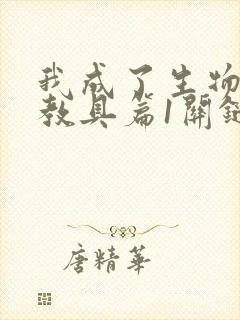 我成了生物
教具篇1関
唐精華